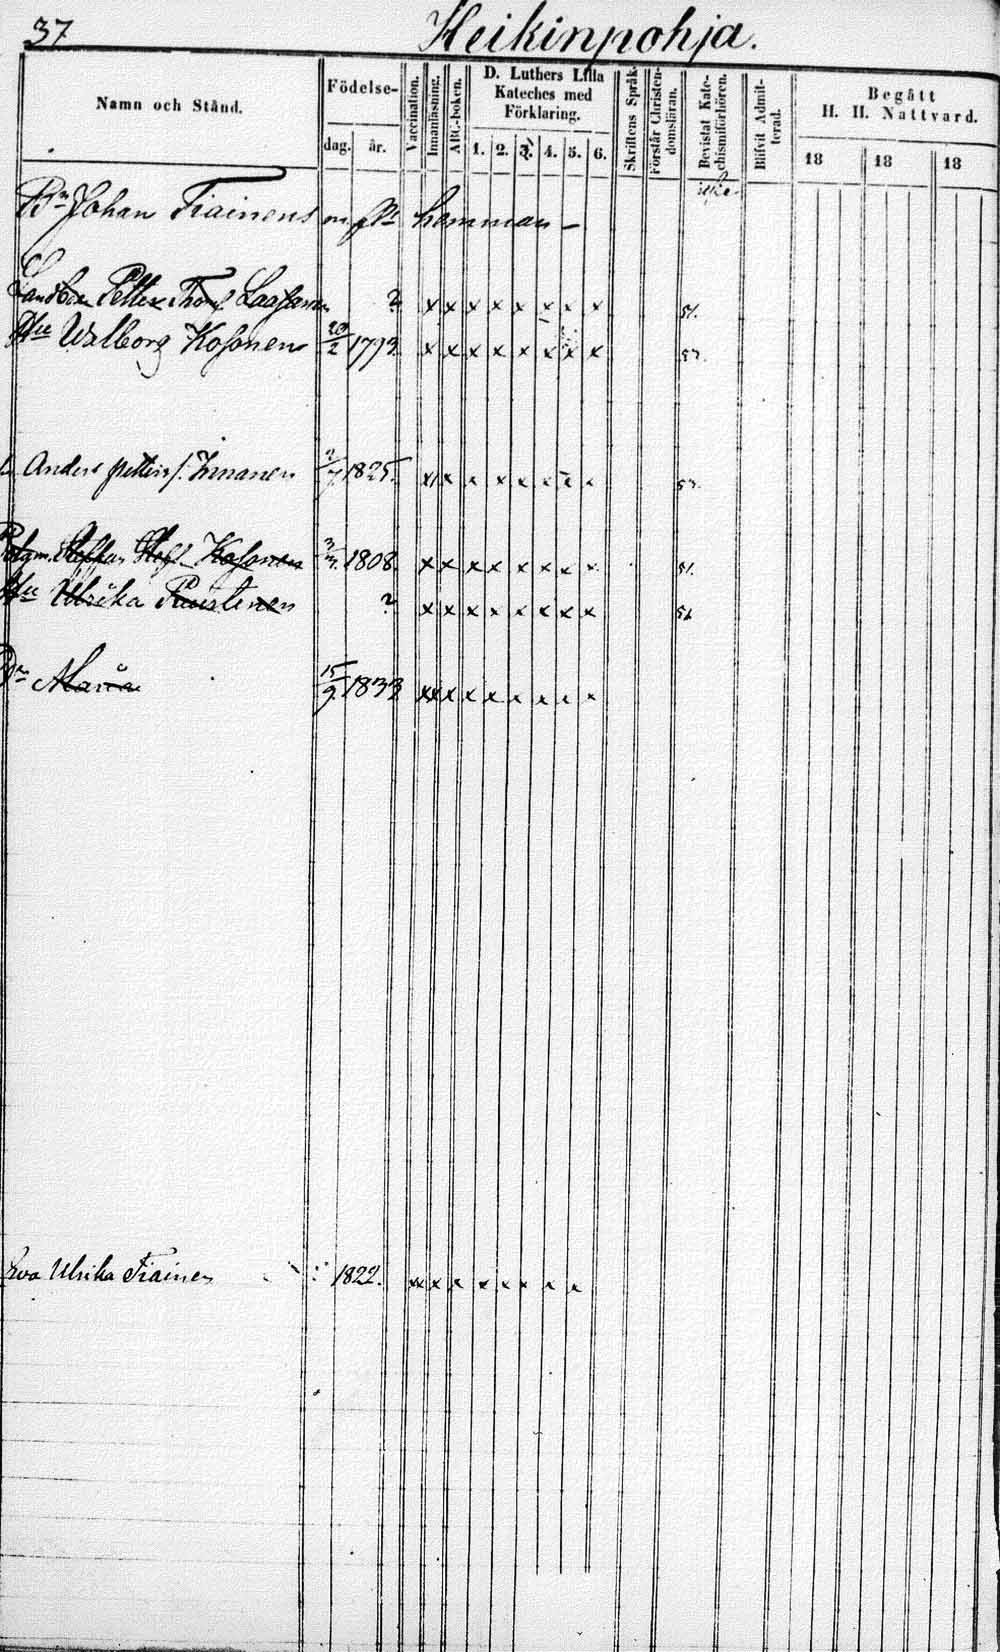 37 Heikinpohja.
Namn och Stånd.
Födelse-
dag. år.
Vaccination.
Innanläsning.
ABC-boken.
D. Luthers Lilla
Kateches med
Förklaring.
1. 2. 3. 4. 5. 6.
Skriftens Språk.
Förstår Christen-
domsläran.
Bevistat Kate-
chismiförhören.
Blifvit Admit-
terad.
Begått
H. H. Nattvard.
18 18 18
Johan Tiainens hemman –
Petter ? x x x x x x x x 51.
Walborg Kosonen 2 1793 x x x x x x x x 53.
Anders 2/7 1825. x x x x x x x x 53.
Staffan Kosonen 3 1808. x x x x x x x x 51.
Ulrika Puustinen ? x x x x x x x x
Maria 15/9 1833 xx x x x x x x x
Eva Ulrika Tiainen 1822. xx x x x x x x x